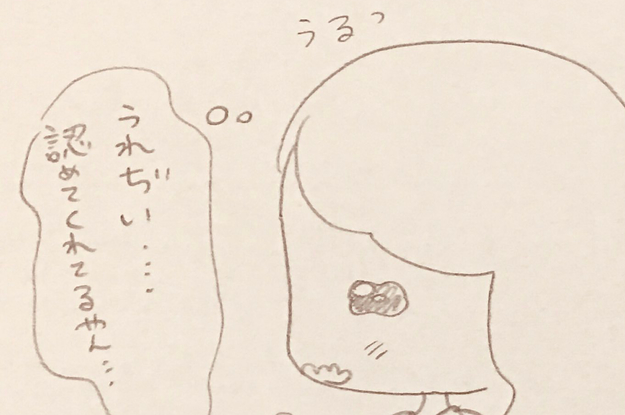 うるっ
うれぢい……
認めてくれてるやん…